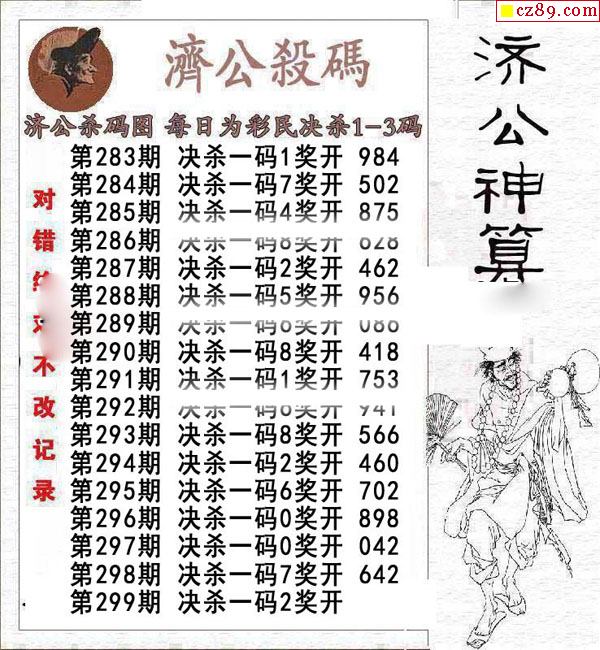 cz89.com
濟公殺碼
济公杀码图 每日为彩民决杀1-3码
第283期 决杀一码1奖开 984
第284期 决杀一码7奖开 502
第285期 决杀一码4奖开 875
第286期 决杀一码 奖开
第287期 决杀一码2奖开 462
第288期 决杀一码5奖开 956
第289期 决杀一码 奖开
第290期 决杀一码8奖开 418
第291期 决杀一码1奖开 753
第292期 决杀一码 奖开
第293期 决杀一码8奖开 566
第294期 决杀一码2奖开 460
第295期 决杀一码6奖开 702
第296期 决杀一码0奖开 898
第297期 决杀一码0奖开 042
第298期 决杀一码7奖开 642
第299期 决杀一码2奖开
对错 不改记录
济公神算